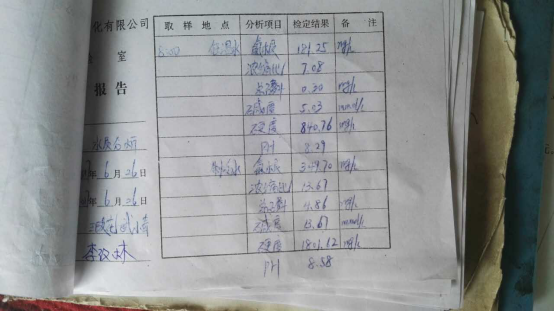 化有限公司
室
报告
水质分析
6月26日
6月26日
取样地点 分析项目 检定结果 备注
8:00 低温水 氯根 181.25 mg/L
浓缩比 7.08
总磷 0.30 mg/L
碱度 5.03 mmol/L
硬度 840.76 mg/L
PH 8.29
氯根 349.70 mg/L
浓缩比 13.67
总磷 4.86 mg/L
碱度 13.67 mmol/L
硬度 1801.12 mg/L
PH 8.58